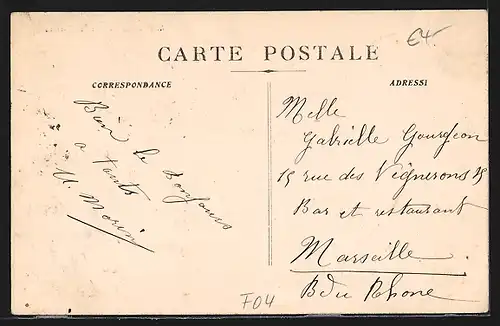 CARTE POSTALE
€4
CORRESPONDANCE
ADRESSE
Bien le bonjour
a touts
M. Morin
Melle
Gabrielle Gourgeon
15 rue des Vignerons 15
Bar et restaurant
Marseille
B du Rhone
F04